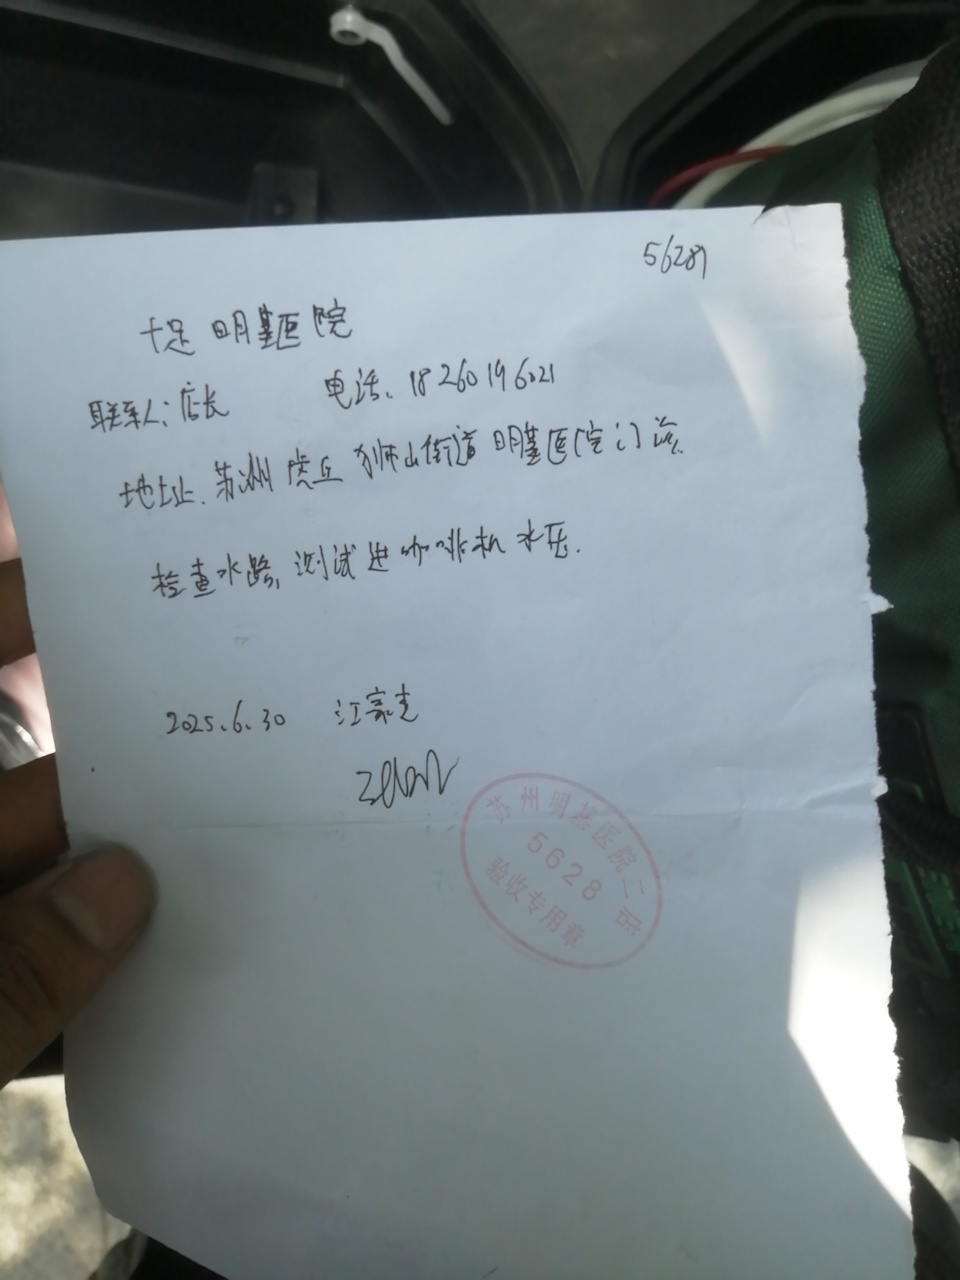 56289
十足 明基医院
联系人：店长 电话、18260196021
地址、苏州 虎丘 狮山街道 明基医院门诊
检查水路, 测试进咖啡机水压.
2025.6.30 江豪克
苏州明基医院二店
5628
验收专用章